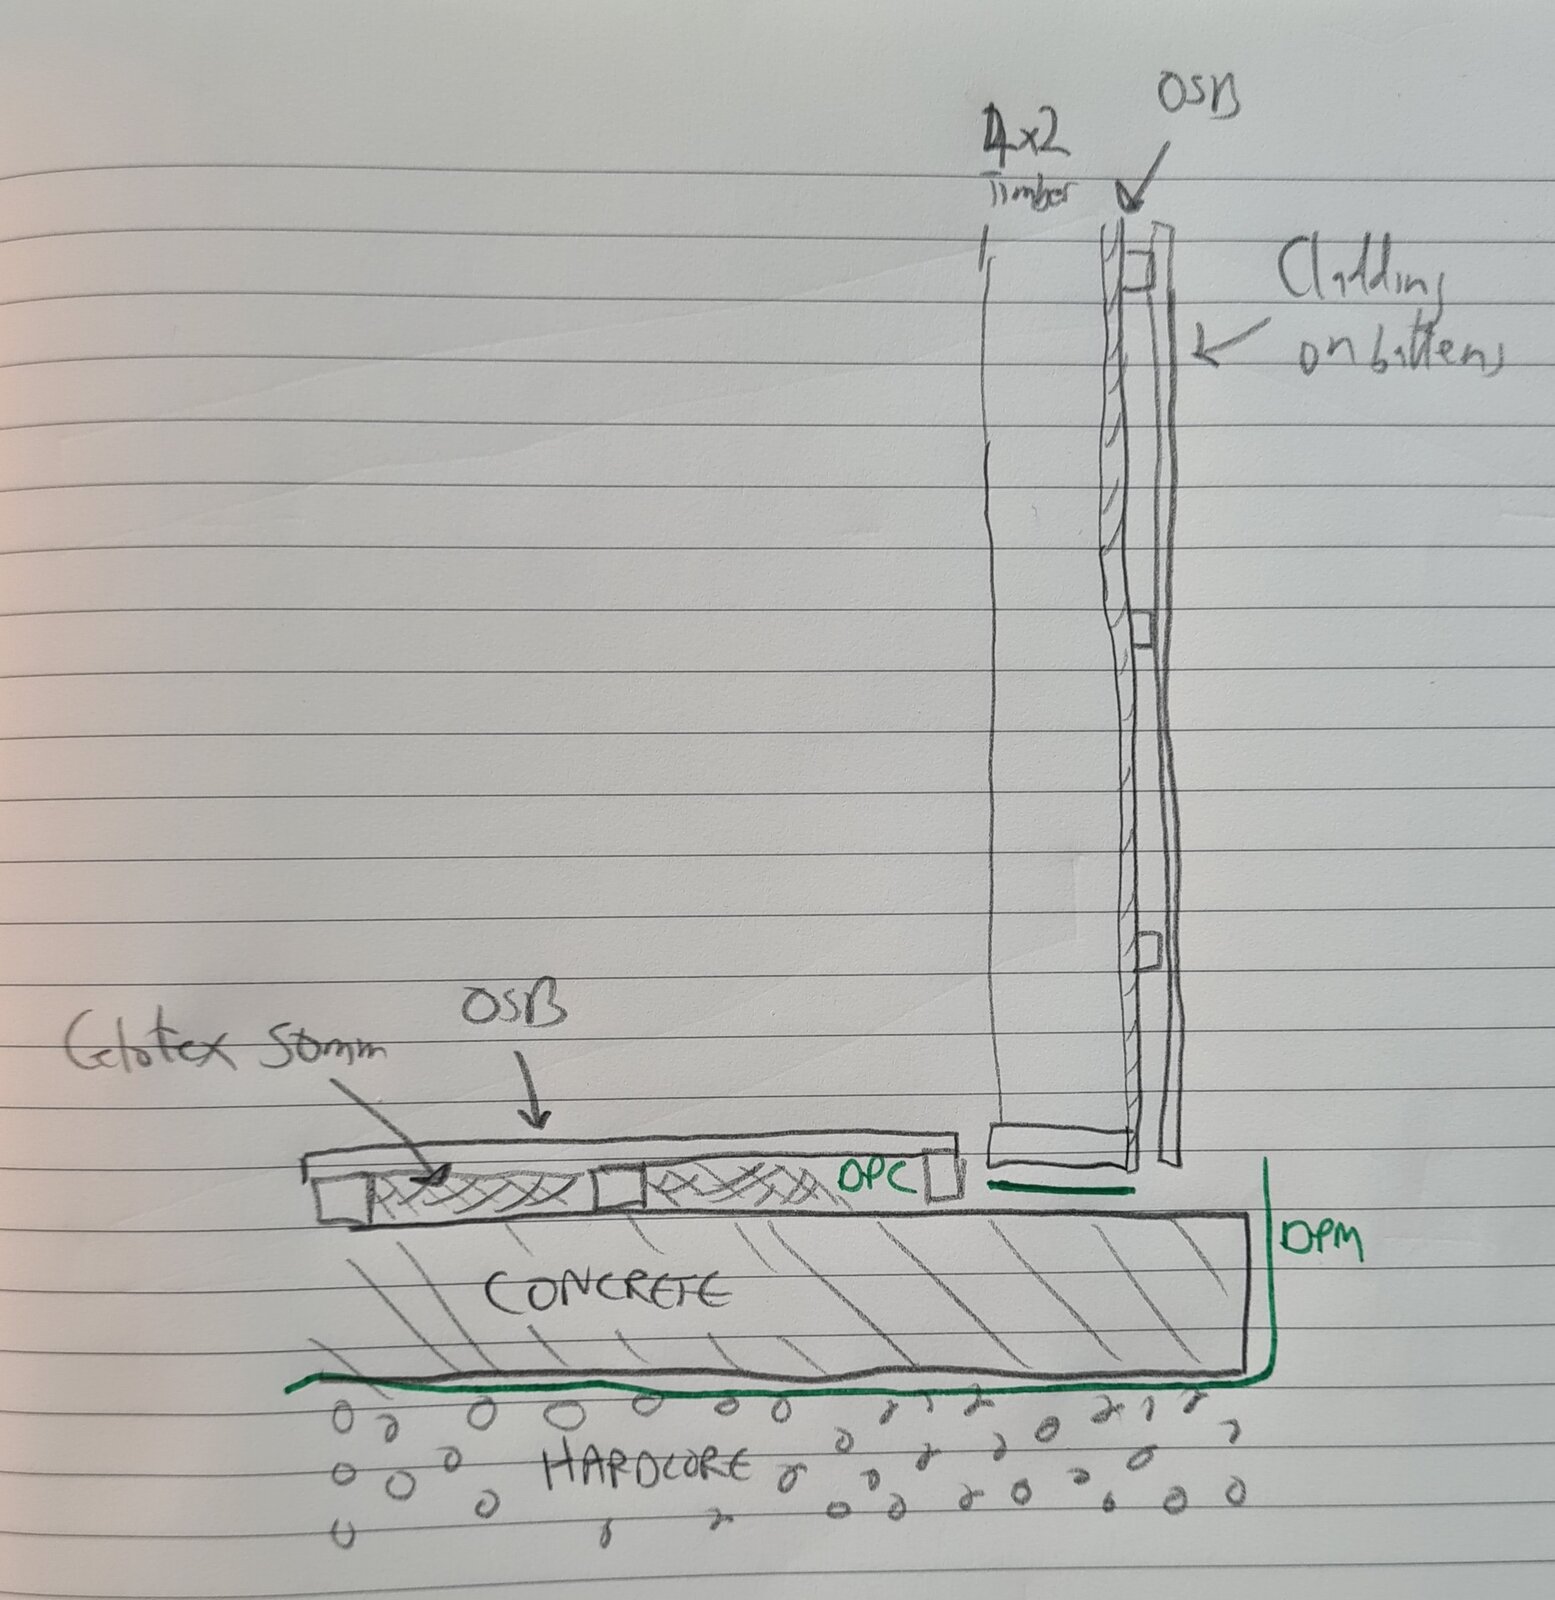 OSB
4x2
Timber
Cladding
on battens
OSB
Celotex 50mm
DPC
DPM
CONCRETE
HARDCORE